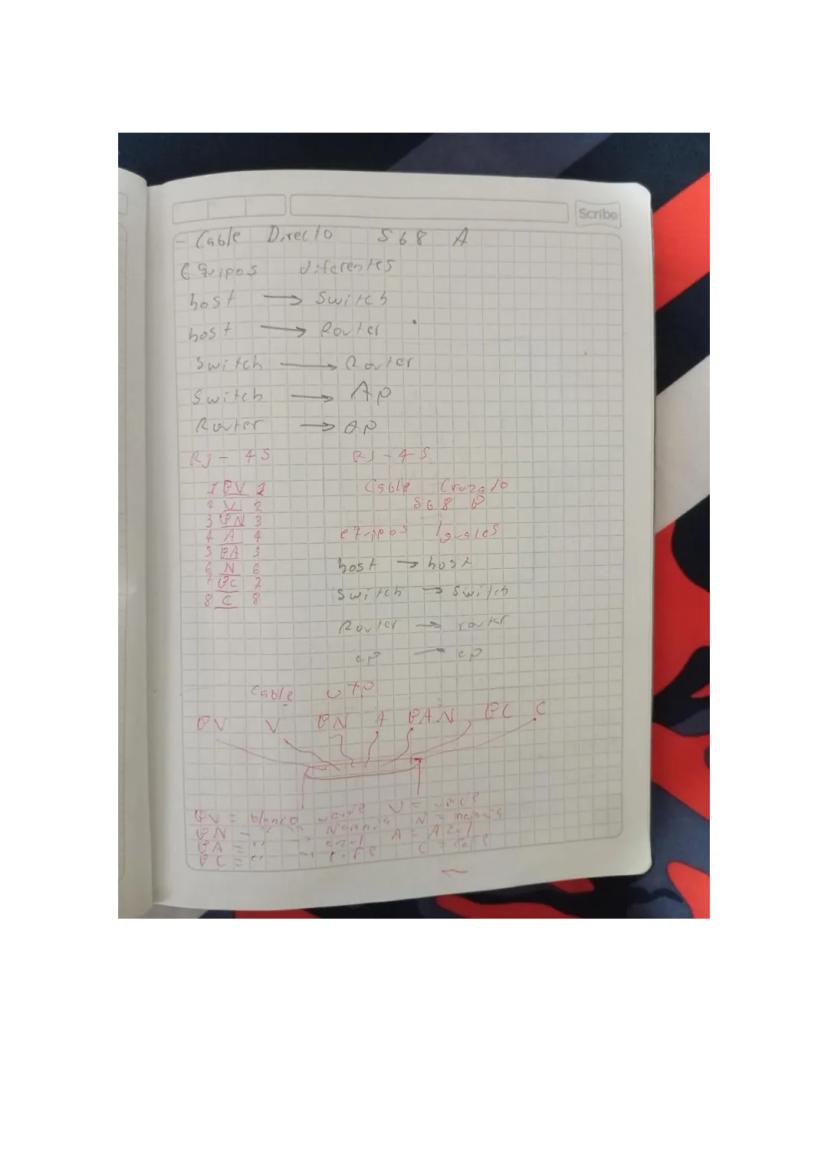 Scribe
- Cable Directo 568 A
Equipos diferentes
host → Switch
host → Router
Switch → Router
Switch → Ap
Router → ap
RJ - 45 RJ - 45
1 BV 1
2 V 2
3 BN 3
4 A 4
5 BA 5
6 N 6
7 BC 7
8 C 8
Cable Cruzado
568 B
equipos Iguales
host → host
Switch → Switch
Router → router
ap → ap
Cable UTP
BV V BN A BAN BC C
BV = blanco verde V = verde
BN = " " Naranja N = naranja
BA = " " azul A = Azul
BC = " " Cafe C = Cafe